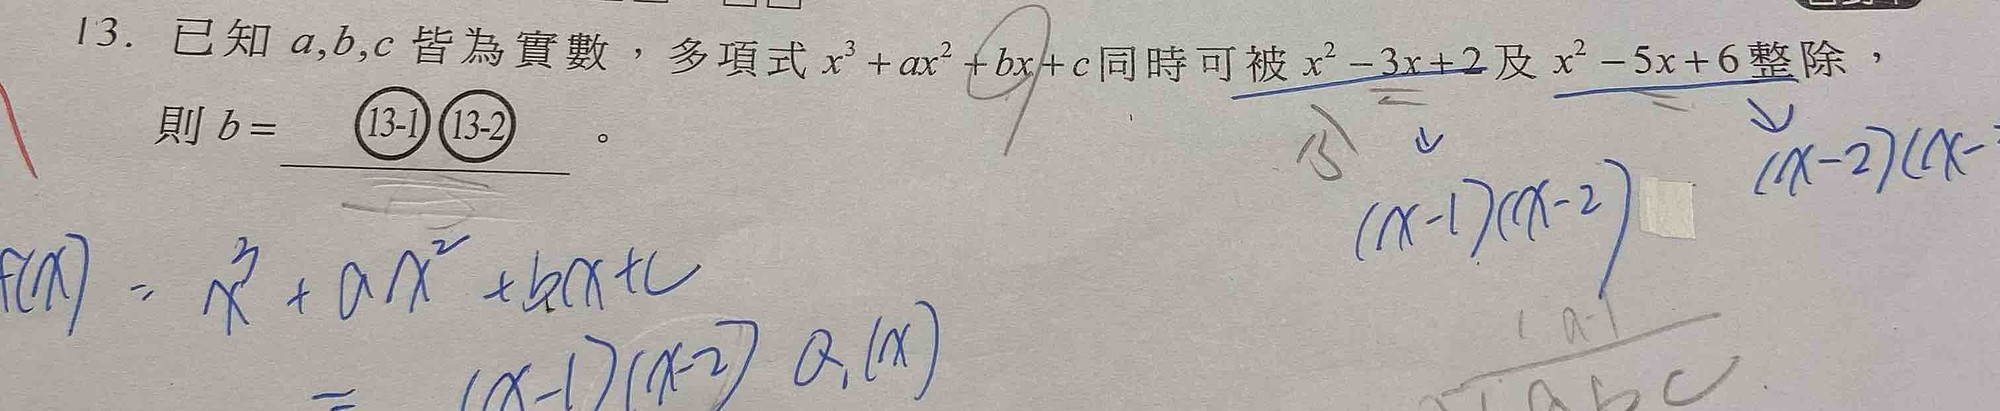 13. 已知 a,b,c 皆為實數，多項式 x³+ax²+bx+c 同時可被 x²−3x+2 及 x²−5x+6 整除，
則 b= 13-1 13-2 。
(x-1)(x-2)
(x-2)(x-
f(x) = x³+ax²+bx+c
= (x-1)(x-2) Q₁(x)
1 a b c